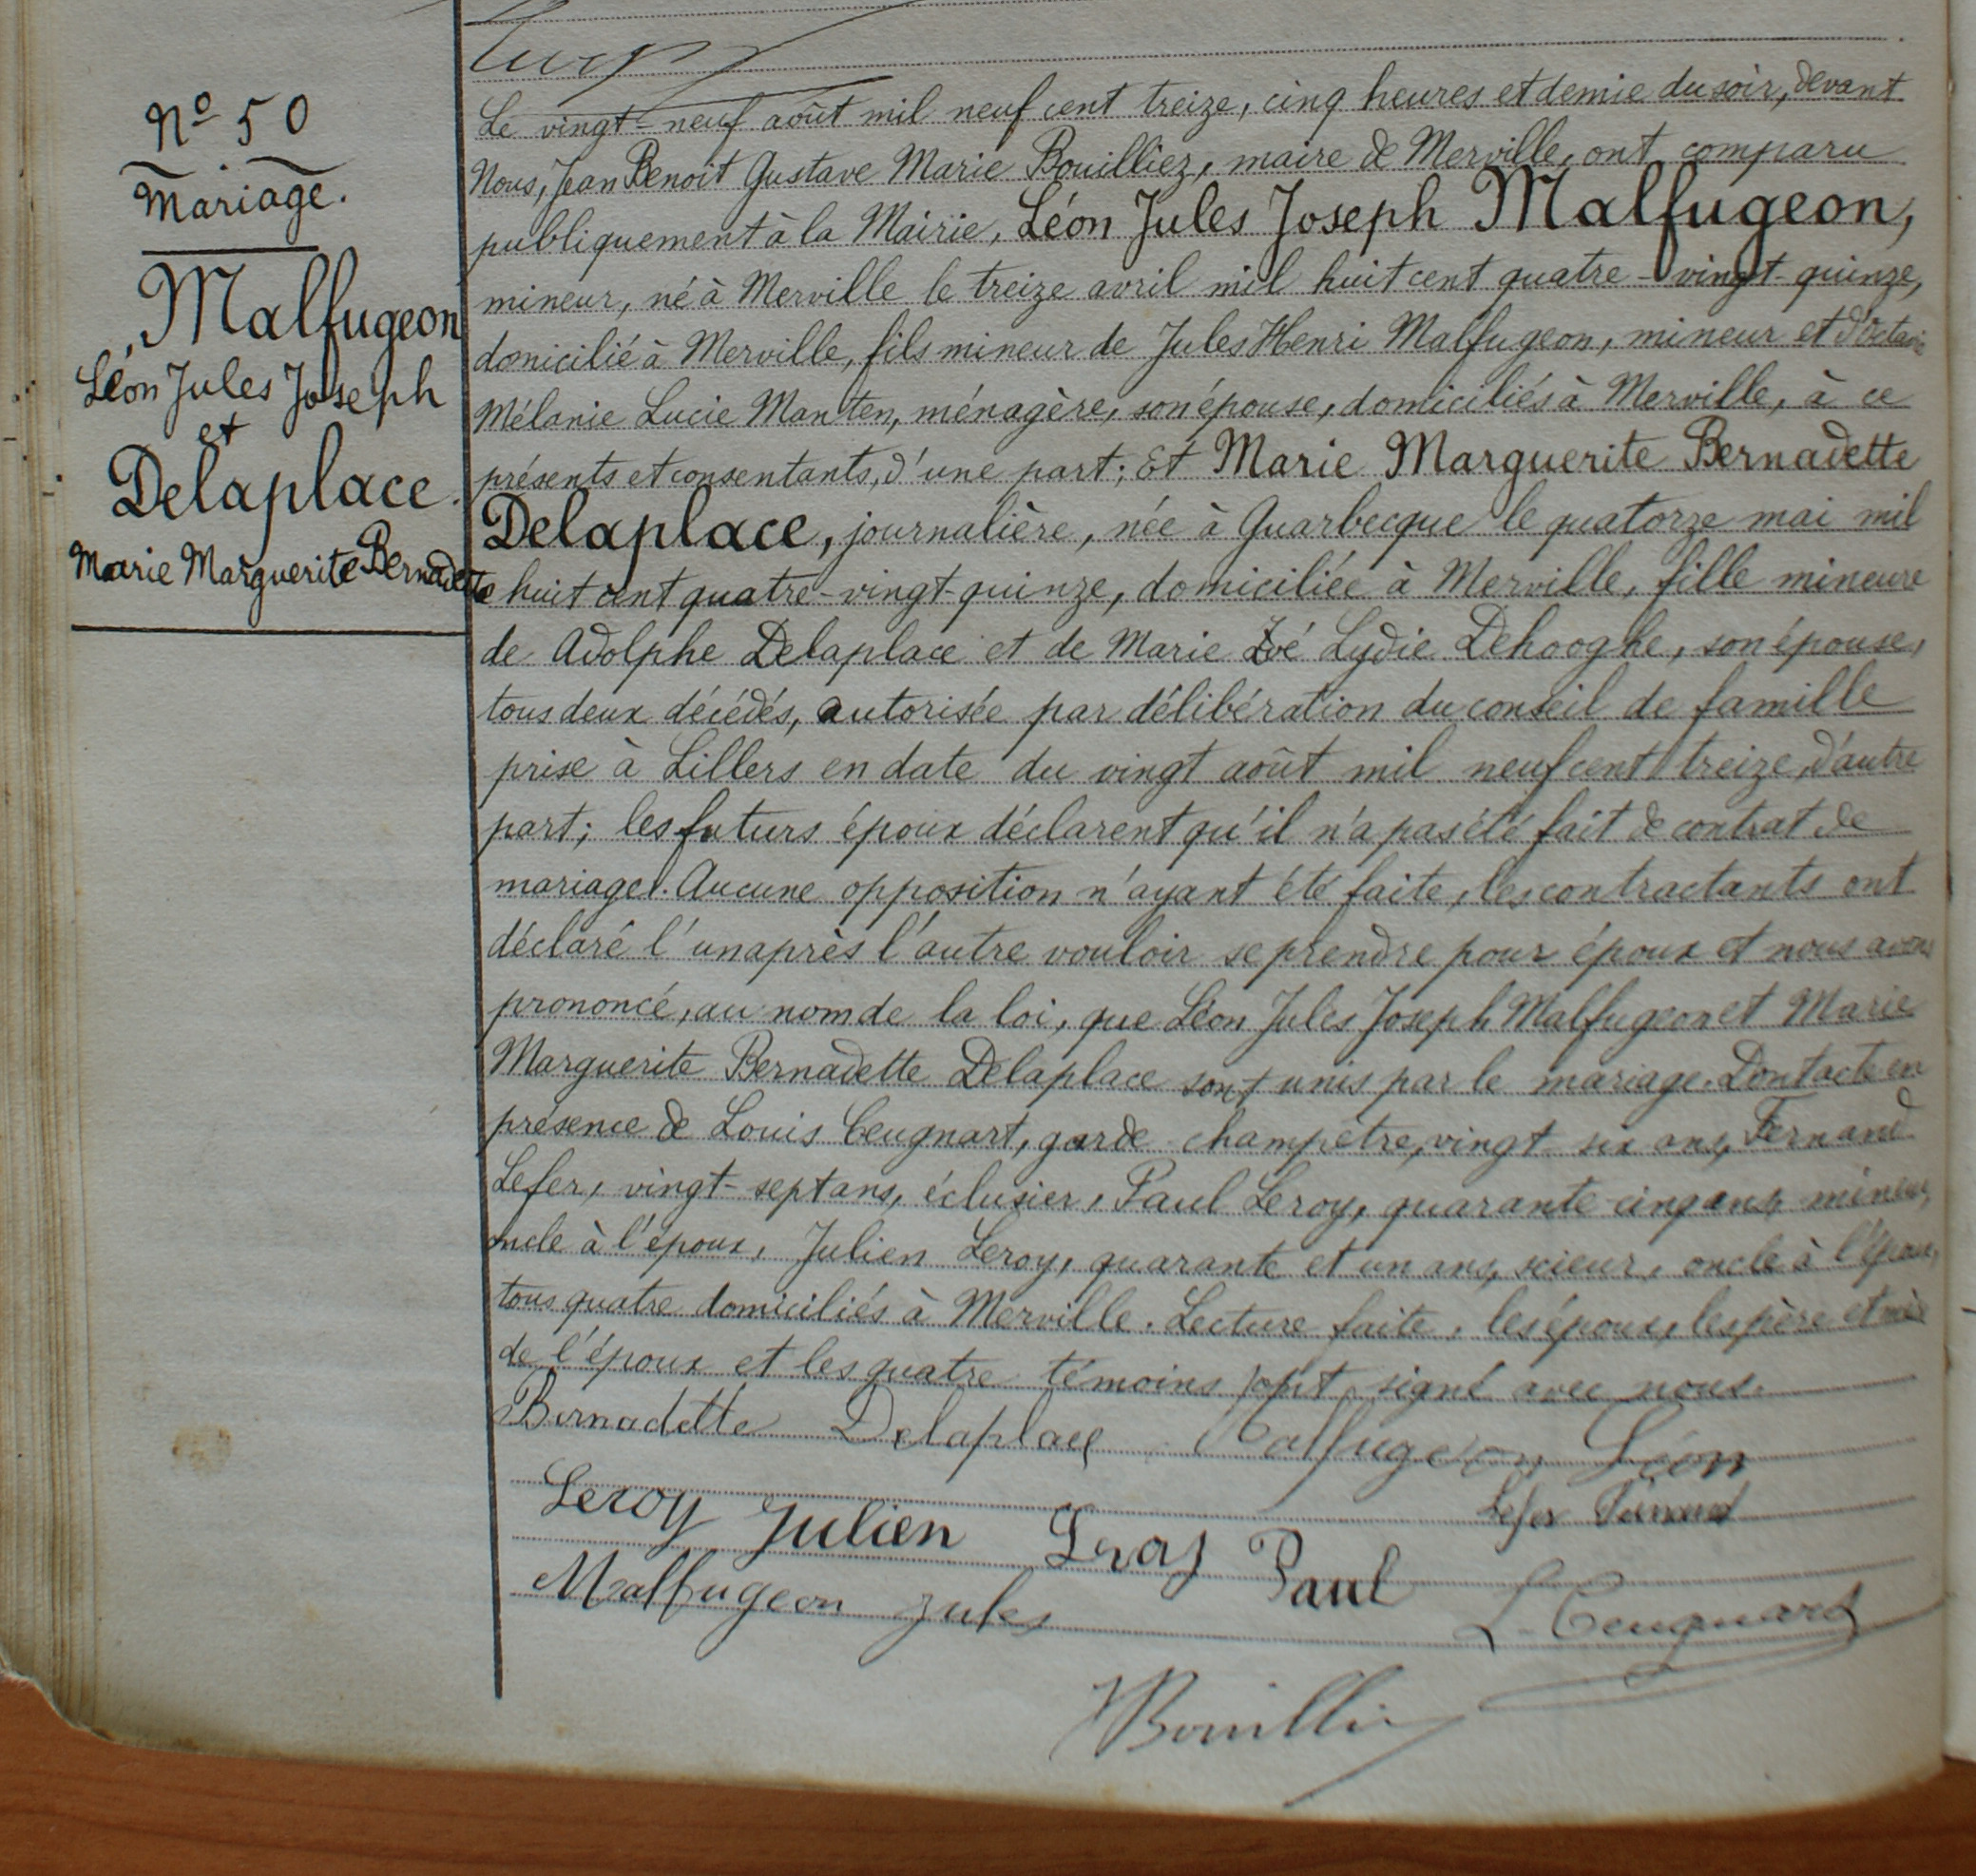 Nº 50
Mariage.
Malfugeon
Léon Jules Joseph
et
Delaplace.
Marie Marguerite Bernadette
Le vingt-neuf août mil neuf cent treize, cinq heures et demie du soir, devant
Nous, Jean Benoit Gustave Marie Bouilliez, maire de Merville, ont comparu
publiquement à la Mairie, Léon Jules Joseph Malfugeon,
mineur, né à Merville le treize avril mil huit cent quatre-vingt-quinze,
domicilié à Merville, fils mineur de Jules Henri Malfugeon, mineur et d'Octavie
Mélanie Lucie Manten, ménagère, son épouse, domiciliés à Merville, à ce
présents et consentants, d'une part; Et Marie Marguerite Bernadette
Delaplace, journalière, née à Guarbecque le quatorze mai mil
huit cent quatre-vingt-quinze, domiciliée à Merville, fille mineure
de Adolphe Delaplace et de Marie Zoé Lydie Dehooghe, son épouse,
tous deux décédés, autorisée par délibération du conseil de famille
prise à Lillers en date du vingt août mil neuf cent treize, d'autre
part; les futurs époux déclarent qu'il n'a pas été fait de contrat de
mariage. Aucune opposition n'ayant été faite, les contractants ont
déclaré l'un après l'autre vouloir se prendre pour époux et nous avons
prononcé, au nom de la loi, que Léon Jules Joseph Malfugeon et Marie
Marguerite Bernadette Delaplace sont unis par le mariage. Dont acte en
présence de Louis Ceugnart, garde-champêtre, vingt-six ans, Fernand
Lefer, vingt-sept ans, éclusier, Paul Leroy, quarante-cinq ans, mineur,
oncle à l'époux, Julien Leroy, quarante et un ans, scieur, oncle à l'époux,
tous quatre domiciliés à Merville. Lecture faite, les époux, les père et mère
de l'époux et les quatre témoins ont signé avec nous.
Bernadette Delaplace Malfugeon Léon
Leroy Julien Leroy Paul Lefer Fernand
Malfugeon Jules L. Ceugnart
Bouilliez